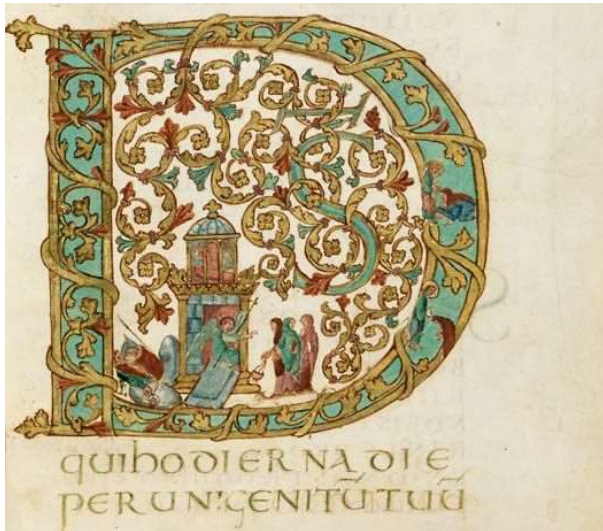 DS
quihODIERNA DIE
PERUNIGENITŪTUŪ